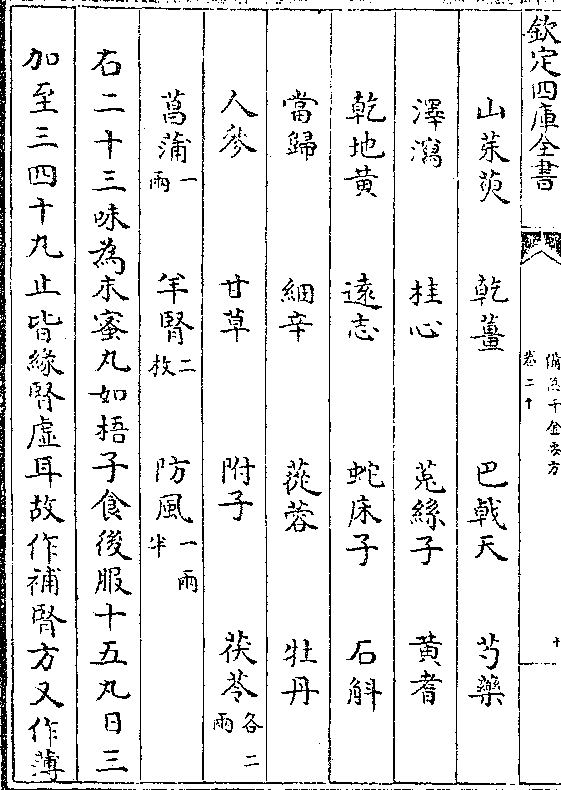 欽定四庫全書
備急千金要方
卷二十
十
山茱萸 乾薑 巴戟天 芍藥
澤瀉 桂心 菟絲子 黄耆
乾地黄 遠志 蛇床子 石斛
當歸 細辛 蓯蓉 牡丹
人參 甘草 附子 茯苓各二兩
菖蒲一兩 羊腎二枚 防風一兩半
右二十三味為末蜜丸如梧子食後服十五丸日三
加至三四十丸止皆緣腎虛耳故作補腎方又作薄